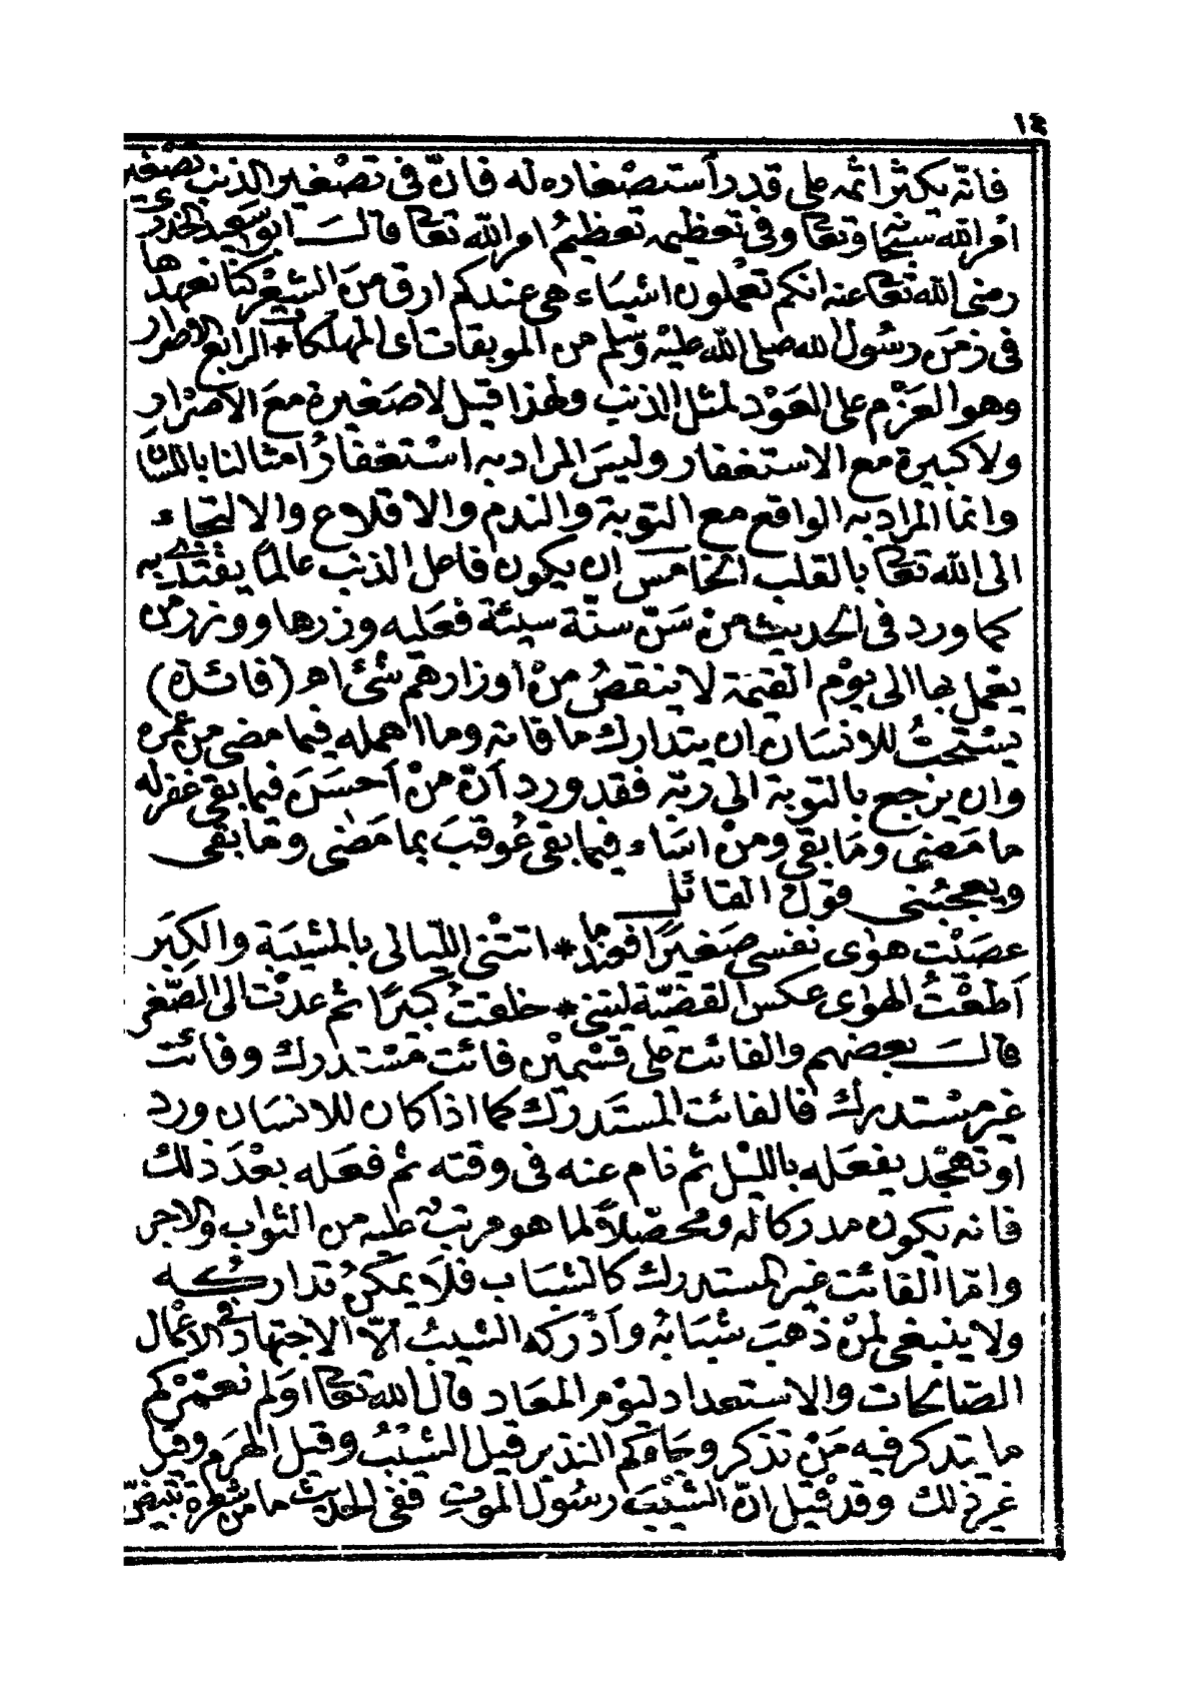 ١٤
فانّه يكثر اثمه على قدر أستصغاره له فانّ فى تصغير الذنب تصغير
امر الله سبحانه وتعالى وفى تعظيمه تعظيم امر الله تعالى قال ابو سعيد الخدرى
رضى الله تعالى عنه انكم تعملون اشياء هى عندكم ارق من الشعر كنا نعهدها
فى زمن رسول الله صلى الله عليه وسلم من الموبقات اى المهلكات * الرابع الاصرار
وهو العزم على العود لمثل الذنب ولهذا قيل لا صغيرة مع الاصرار
ولا كبيرة مع الاستغفار وليس المراد به استغفار أمثالنا باللسان
وانما المراد به الواقع مع التوبة والندم والاقلاع والالتجاء
الى الله تعالى بالقلب الخامس ان يكون فاعل الذنب عالمًا يقتدى به
كما ورد فى الحديث من سنّ سنّة سيئة فعليه وزرها ووزر من
يعمل بها الى يوم القيمة لا ينقص من أوزارهم شئ اهـ (فائدة)
يستحبّ للانسان ان يتدارك ما فاته وما اهمله فيما مضى من عمره
وان يرجع بالتوبة الى ربّه فقد ورد أنّ من أحسن فيما بقى غفر له
ما مضى وما بقى ومن اساء فيما بقى عُوقب بما مَضى وما بقى
ويعجبنى قول القائل
عصيت هوى نفسى صغيرًا فعندما * اتتنى الليالى بالمشيبة والكبَر
أطعتُ الهوى عكس القضيّة ليتنى * خلقت كبيرًا ثم عدت الى الصّغر
قال بعضهم والفائت على قسمين فائت مستدرك وفائت
غير مستدرك فالفائت المستدرك كما اذا كان للانسان ورد
او تهجّد يفعله بالليل ثم نام عنه فى وقته ثم فعله بعد ذلك
فانه يكون مدركا له ومحصّلاً لما هو مرتب عليه من الثواب والاجر
وامّا الفائت غير المستدرك كالشباب فلا يمكن تداركه
ولا ينبغى لمن ذهب شبابه وأدركه الشيب الّا الاجتهاد فى الاعمال
الصّالحات والاستعداد ليوم المعاد قال الله تعالى اولم نعمّركم
ما يتذكر فيه من تذكر وجاءكم النذير قيل الشيب وقيل الهرم وقيل
غير ذلك وقد قيل انّ الشيب رسول الموت ففى الحديث ما من شعرة تبيضّ